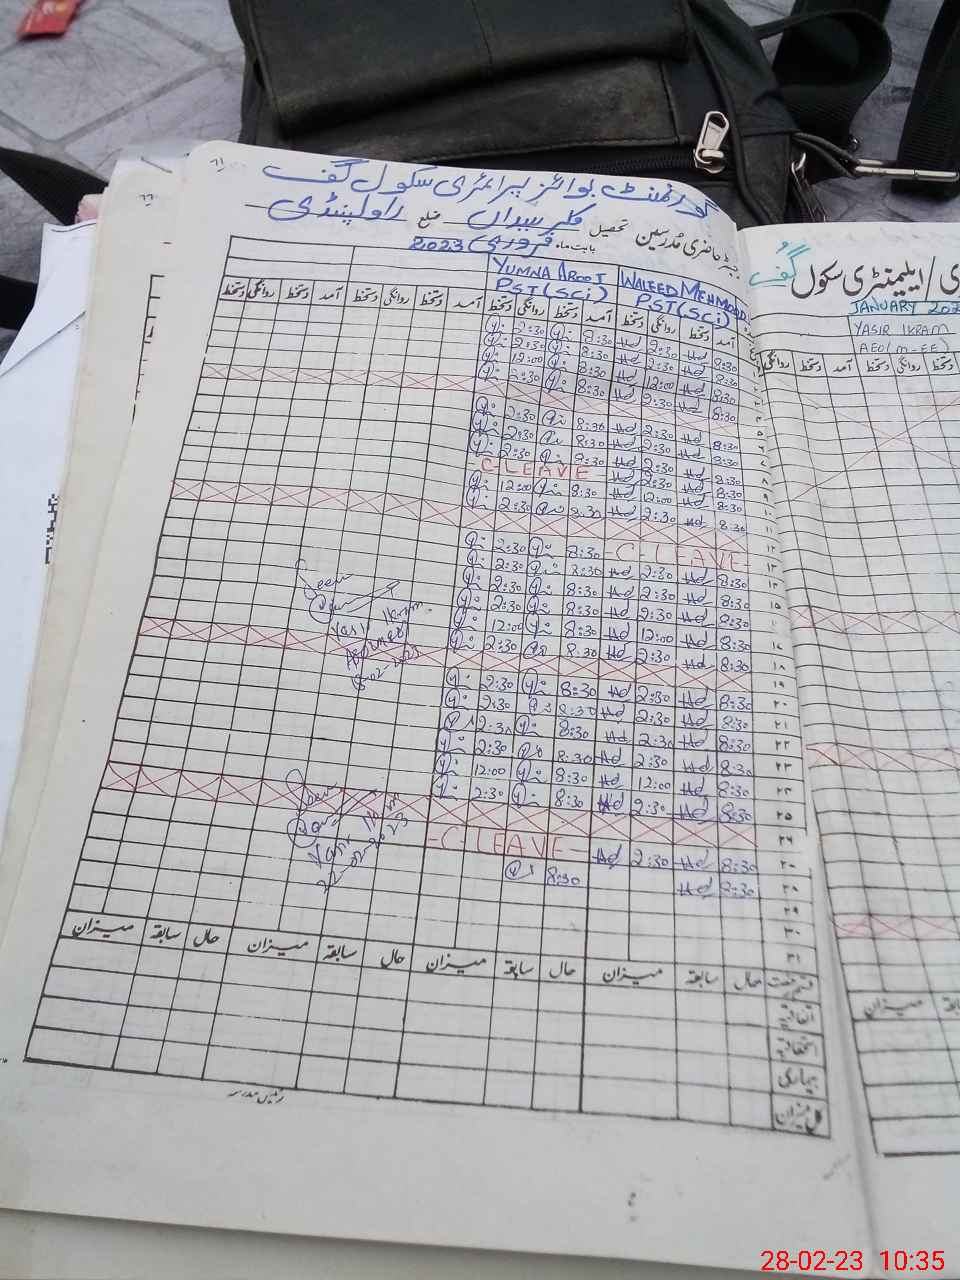 گورنمنٹ بوائز پرائمری سکول گف
رجسٹر حاضری مدرسین تحصیل کلر سیداں ضلع راولپنڈی
بابت ماہ فروری 2023
YUMNA AROOJ WALEED MEHMOOD
PST(Sci) PST(Sci)
آمد دستخط روانگی دستخط آمد دستخط روانگی دستخط آمد دستخط روانگی دستخط آمد دستخط روانگی دستخط
2:30 8:30 2:30 8:30
2:30 8:30 2:30 8:30
12:00 8:30 12:00 8:30
2:30 8:30 2:30 8:30
2:30 8:30 2:30 8:30
2:30 8:30 2:30 8:30
2:30 8:30 2:30 8:30
-C-LEAVE 2:30 8:30
12:00 8:30 12:00 8:30
2:30 8:30 2:30 8:30
2:30 8:30 -C-LEAVE-
2:30 8:30 2:30 8:30
2:30 8:30 2:30 8:30
2:30 8:30 2:30 8:30
12:00 8:30 12:00 8:30
2:30 8:30 2:30 8:30
2:30 8:30 2:30 8:30
2:30 8:30 2:30 8:30
2:30 8:30 2:30 8:30
2:30 8:30 2:30 8:30
12:00 8:30 12:00 8:30
2:30 8:30 2:30 8:30
-C-LEAVE- 2:30 8:30
8:30 8:30
۲۹
۳۰
۳۱
Seen
Yasir Ikram
8-02-2023
Seen
Yasir Ikram
22-02-2023
حال سابقہ میزان حال سابقہ میزان حال سابقہ میزان حال سابقہ میزان
قسم رخصت
اتفاقیہ
استحقاقیہ
بیماری
کل میزان
رئیس مدرسہ
ایلیمنٹری سکول گف
JANUARY 202
YASIR IKRAM
AEO(M-EE)
روانگی دستخط آمد دستخط روانگی دستخط
میزان
28-02-23 10:35